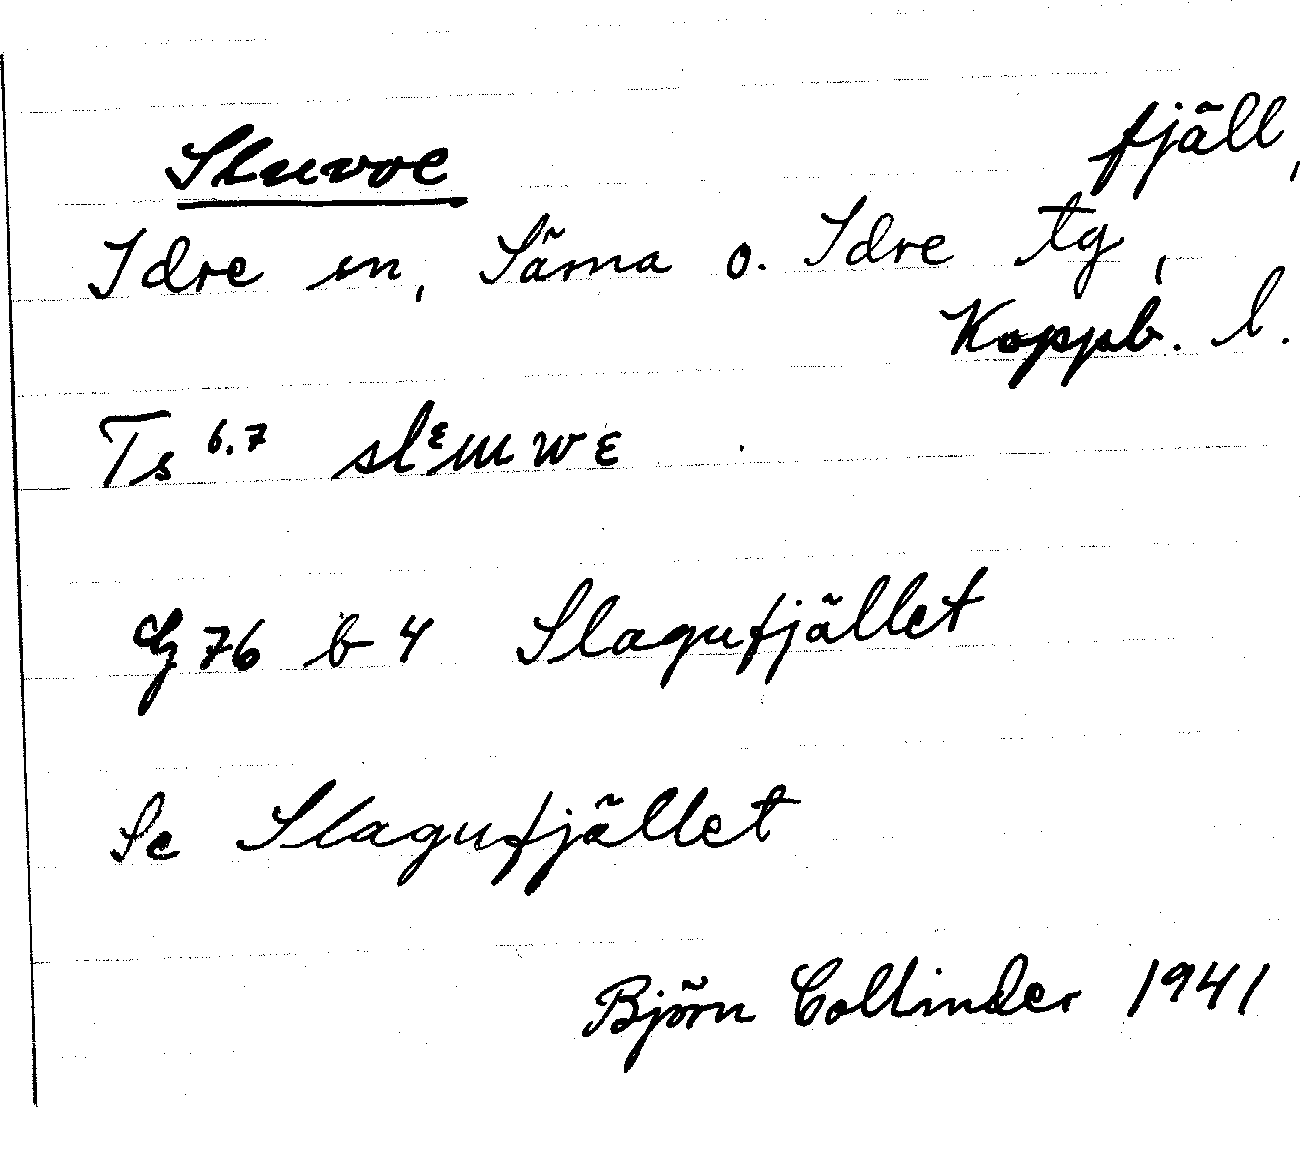 Sluvoe fjäll,
Idre sn, Särna o. Idre tg,
Koppb. l.
Ts 6.7 slᵋɯwɛ
G 76 b 4 Slagufjället
Se Slagufjället
Björn Collinder 1941